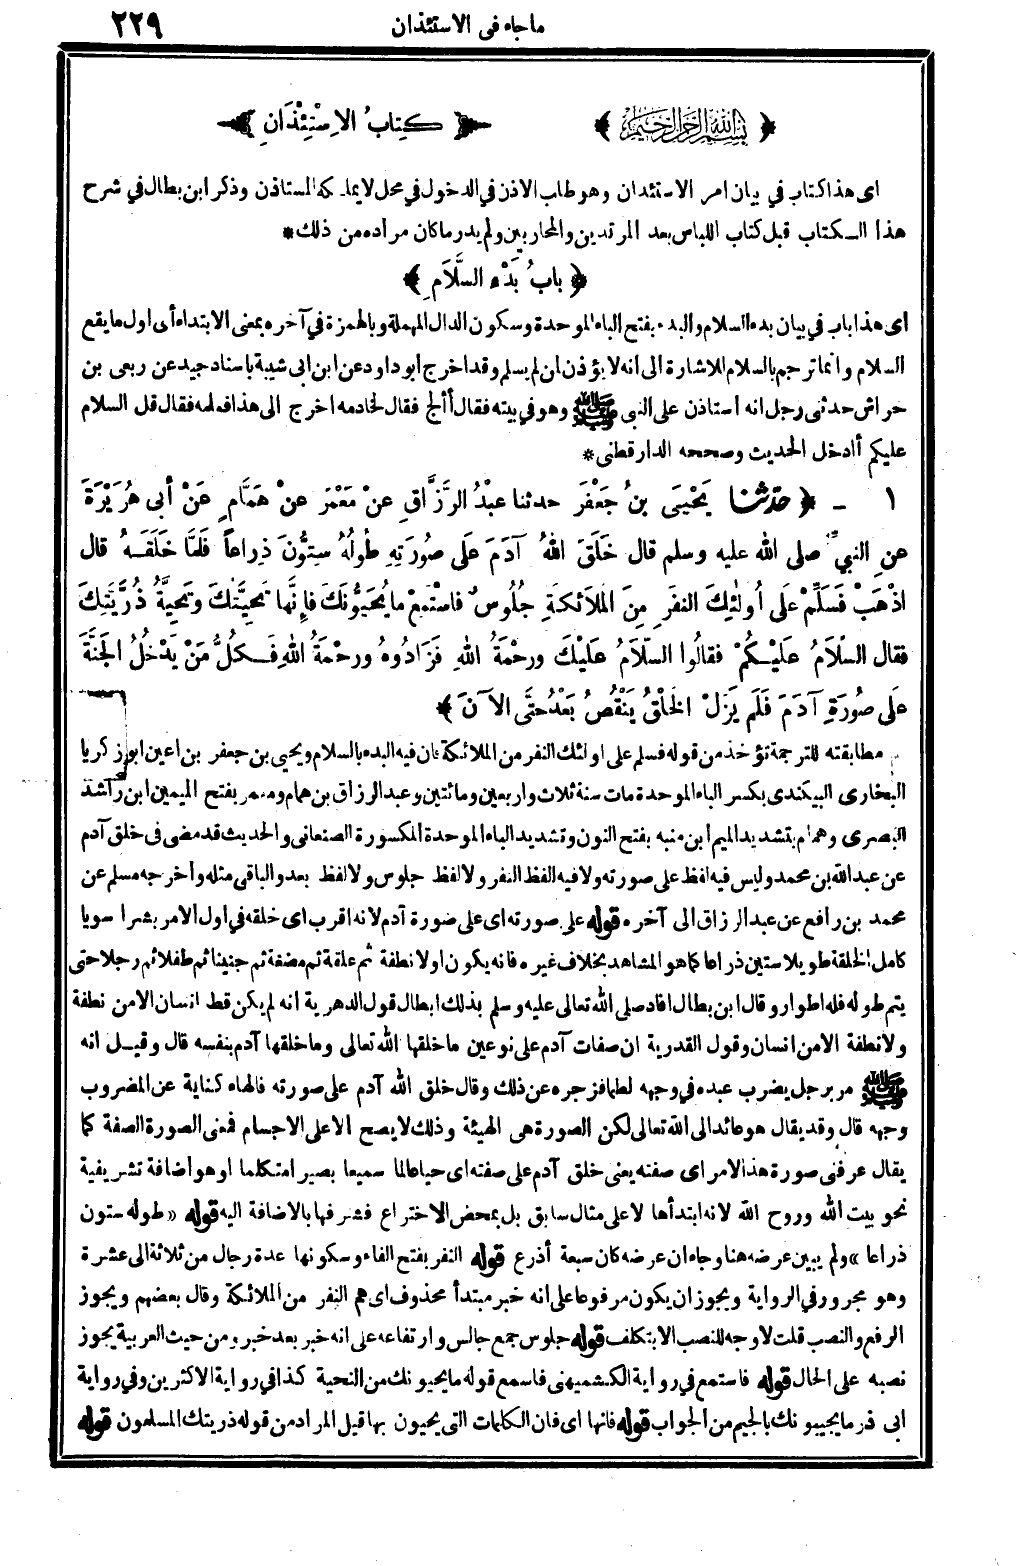 ماجاء في الاستئذان ٢٢٩
﴿ بسم الله الرحمن الرحيم ﴾ ﴿ كِتابُ الاِسْتِئْذَانِ ﴾
اى هذا كتاب في بيان امر الاستئذان وهو طلب الاذن في الدخول في محل لايملكه المستاذن وذكر ابن بطال في شرح
هذا الكتاب قبل كتاب اللباس بعد المرتدين والمحاربين ولم يدر ما كان مراده من ذلك *
﴿ بابُ بَدْء السَّلَامِ ﴾
اى هذا باب في بيان بدء السلام والبدء بفتح الباء الموحدة وسكون الدال المهملة وبالهمزة في آخره بمعنى الابتداء أى اول ما يقع
السلام وانما ترجم بالسلام للاشارة الى انه لا يؤذن ان لم يسلم وقد اخرج ابو داود عن ابن ابى شيبة باسناد جيد عن ربعى بن
حراش حدثنى رجل انه أستاذن على النبى ﷺ وهو في بيته فقال أألج فقال لخادمه اخرج الى هذا فعلمه فقال قل السلام
عليكم أادخل الحديث وصححه الدارقطنى *
١ - ﴿ حدّثنا يَحْيَى بنُ جَعْفَرَ حدثنا عبْدُ الرَّزَّاقِ عنْ مَعْمَرَ عنْ هَمَّامٍ عَنْ أبى هُرَيْرَةَ
عنِ النبيِّ صلى الله عليه وسلم قال خَلَقَ اللهُ آدَمَ عَلَى صُورَتِهِ طُولُهُ سِتُّونَ ذِرَاعاً فَلَمَّا خَلَقَهُ قال
اذْهَبْ فَسَلِّمْ عَلَى أُولٰئِكَ النفَرِ مِنَ المَلَائكةِ جُلُوسٌ فاستَمِعْ ما يُحَيُّونَكَ فإِنَّها تَحِيَّتُكَ وتَحِيَّةُ ذُرِّيَّتِكَ
فقال السّلَامُ عَلَيْكُمْ فقالُوا السّلَامُ عَلَيْكَ ورحْمَةُ اللهِ فَزَادُوهُ ورحْمَةُ اللهِ فَكلُّ مَنْ يَدْخُلُ الجَنَّةَ
عَلَى صُورَةِ آدَمَ فَلَم يَزَلْ الخَلْقُ يَنْقُصُ بَعْدُ حتَّى الآنَ ﴾
مطابقته للترجمة تؤخذ من قوله فسلم على اولئك النفر من الملائكة فان فيه البدء بالسلام ويحيى بن جعفر بن اعين ابو زكريا
البخارى البيكندى بكسر الباء الموحدة مات سنة ثلاث واربعين ومائتين وعبد الرزاق بن همام ومعمر بفتح الميمين ابن راشد
البصرى وهمام بتشديد الميم ابن منبه بفتح النون وتشديد الباء الموحدة المكسورة الصنعانى والحديث قد مضى فى خلق آدم
عن عبدالله بن محمد وليس فيه لفظ على صورته ولا فيه لفظ النفر ولا لفظ جلوس ولا لفظ بعد والباقى مثله وأخرجه مسلم عن
محمد بن رافع عن عبد الرزاق الى آخره قوله على صورته اى على صورة آدم لانه اقرب اى خلقه في اول الامر بشرا سويا
كامل الخلقة طويلا ستين ذراعا كما هو المشاهد بخلاف غيره فانه يكون اولا نطفة ثم علقة ثم مضغة ثم جنينا ثم طفلا ثم رجلا حتى
يتم طوله فله اطوار وقال ابن بطال افاد صلى الله تعالى عليه وسلم بذلك ابطال قول الدهرية انه لم يكن قط انسان الا من نطفة
ولا نطفة الا من انسان وقول القدرية ان صفات آدم على نوعين ما خلقها الله تعالى وما خلقها آدم بنفسه قال وقيل انه
ﷺ مر برجل يضرب عبده في وجهه لطما فزجره عن ذلك وقال خلق الله آدم على صورته فالهاء كناية عن المضروب
وجهه قال وقد يقال هو عائد الى الله تعالى لكن الصورة هى الهيئة وذلك لا يصح الا على الاجسام فمعنى الصورة الصفة كما
يقال عرفنى صورة هذا الامر اى صفته يعنى خلق آدم على صفته اى حيا عالما سميعا بصيرا متكلما او هو اضافة تشريفية
نحو بيت الله وروح الله لانه ابتدأها لا على مثال سابق بل بمحض الاختراع فشرفها بالاضافة اليه قوله «طوله ستون
ذراعا» ولم يبين عرضه هنا وجاء ان عرضه كان سبعة أذرع قوله النفر بفتح الفاء وسكونها عدة رجال من ثلاثة الى عشرة
وهو مجرور في الرواية ويجوز ان يكون مرفوعا على انه خبر مبتدأ محذوف اى هم النفر من الملائكة وقال بعضهم ويجوز
الرفع والنصب قلت لا وجه للنصب الا بتكلف قوله جلوس جمع جالس وارتفاعه على انه خبر بعد خبر ومن حيث العربية يجوز
نصبه على الحال قوله فاستمع في رواية الكشميهنى فاسمع قوله ما يحيونك من التحية كذا في رواية الاكثرين وفي رواية
ابى ذر ما يجيبونك بالجيم من الجواب قوله فانها اى فان الكلمات التى يحيون بها قيل المراد من قوله ذريتك المسلمون قوله